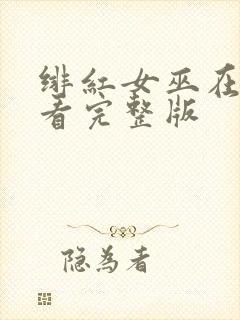 绯红女巫在
看完整版
隐为者